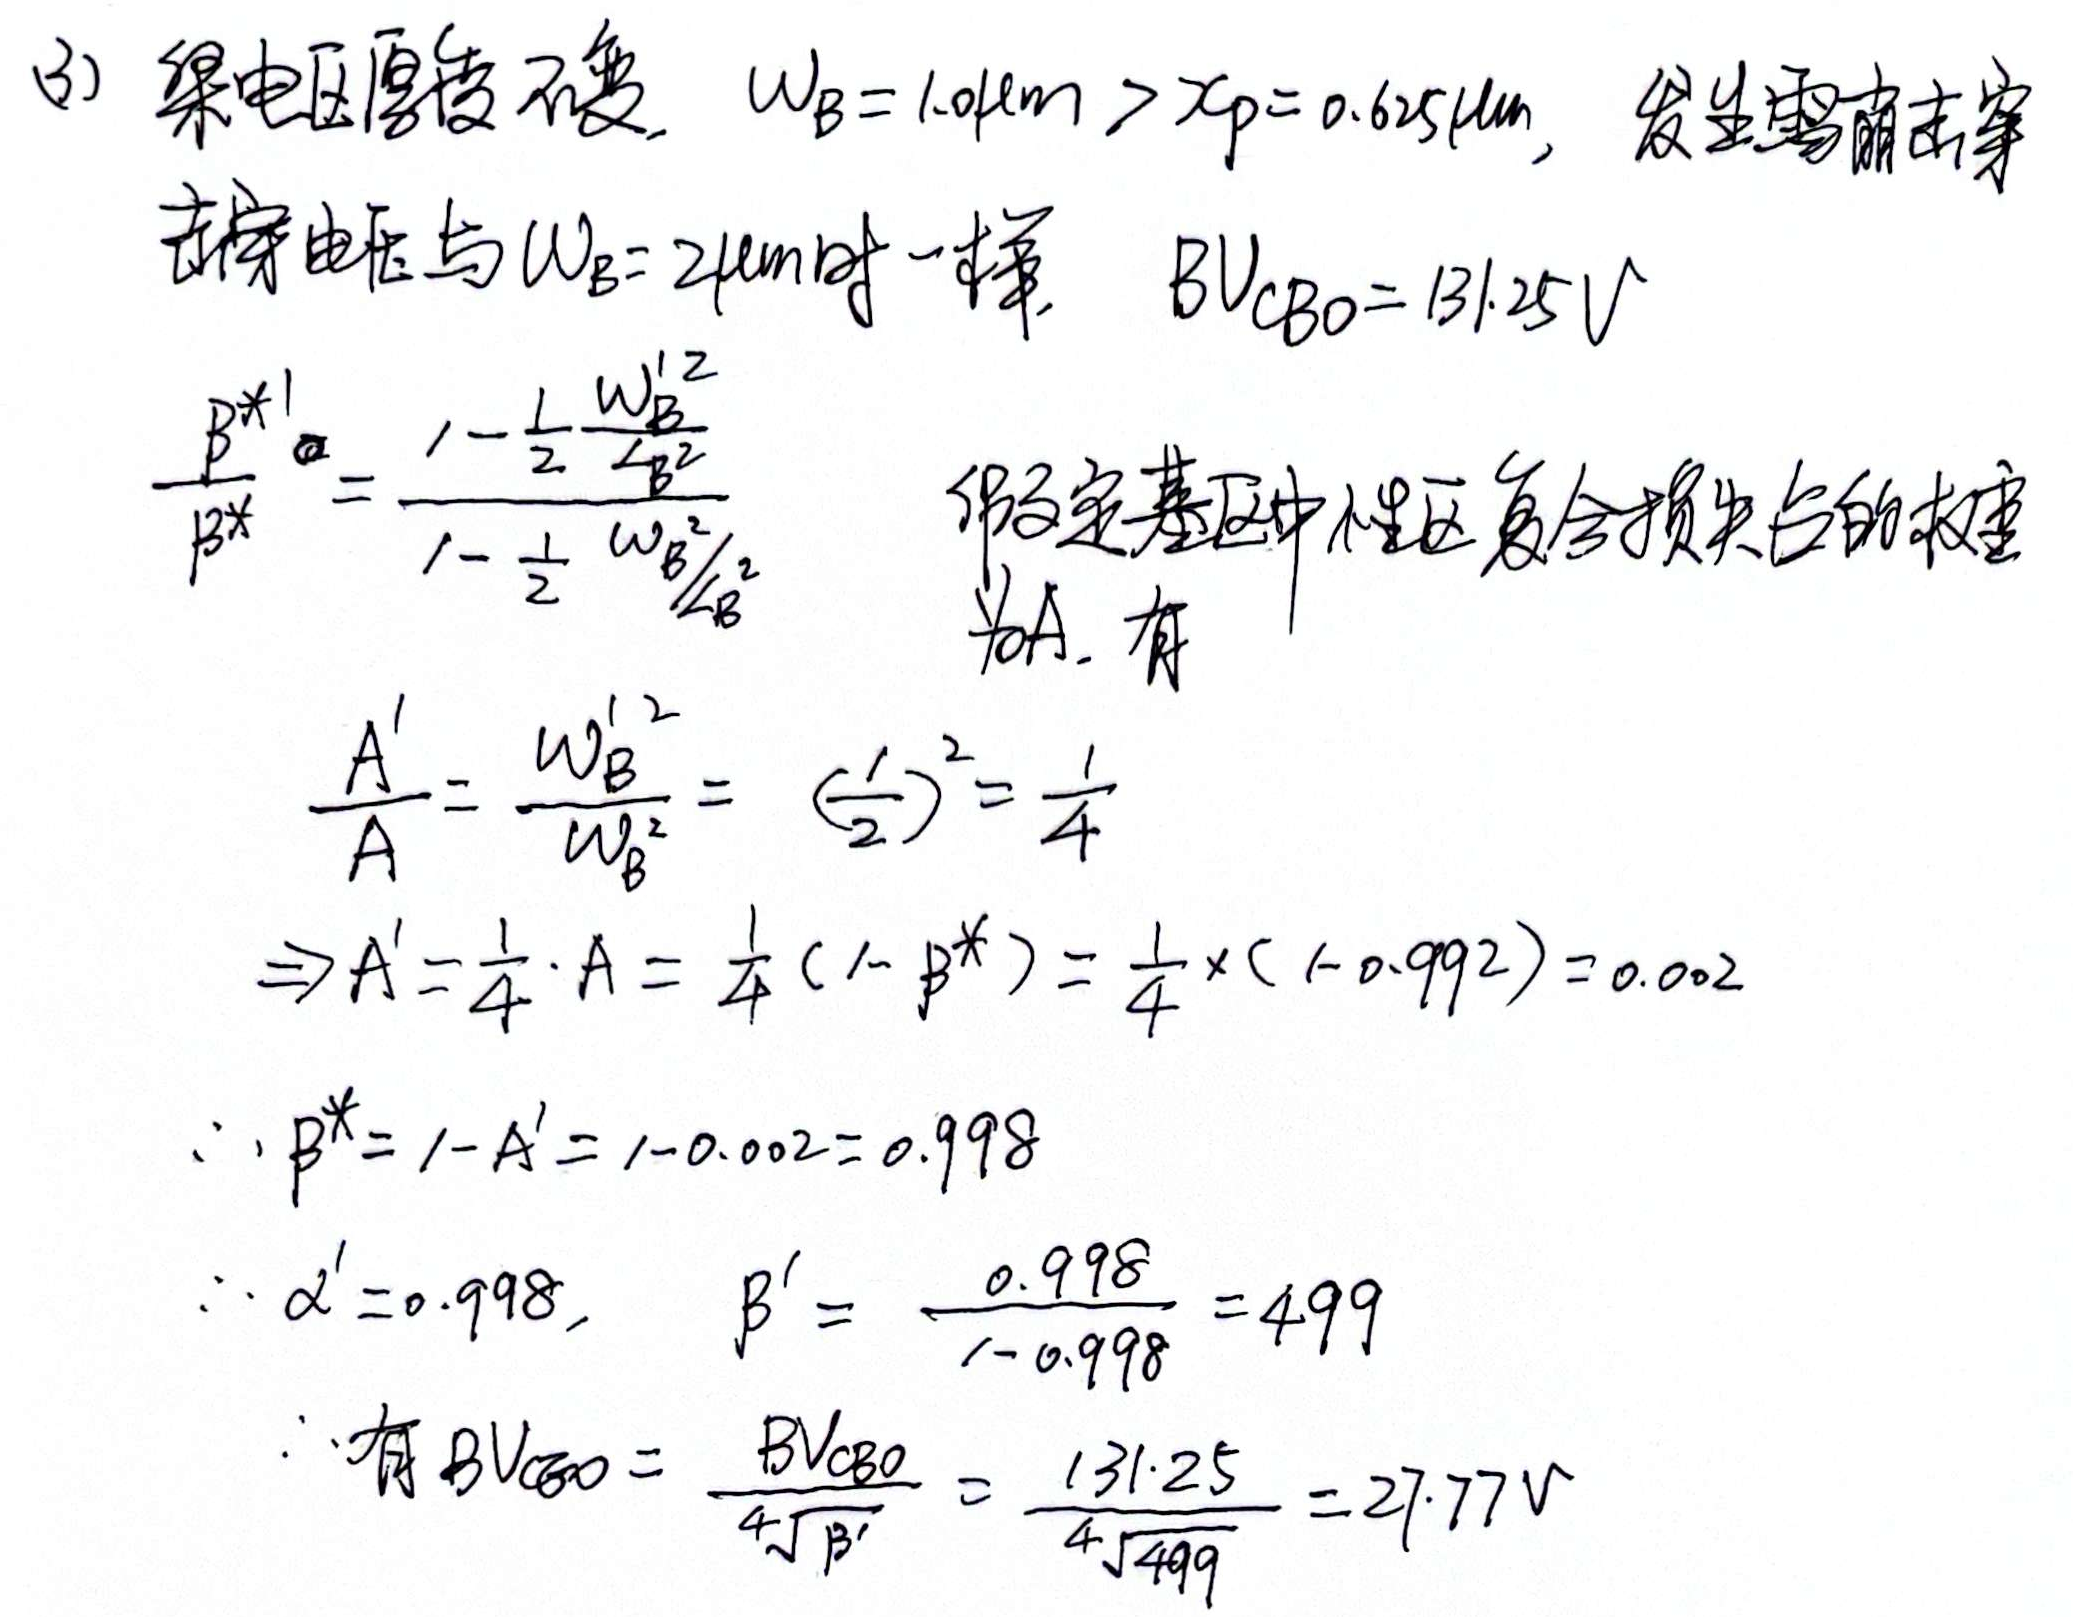 (3) 集电区厚度不变. W_B = 1.0μm > x_p = 0.625μm, 发生雪崩击穿
击穿电压与 W_B = 2μm 时一样. BV_CBO = 131.25V
β*'/β* = (1 - 1/2 W_B'^2/L_B^2)/(1 - 1/2 W_B^2/L_B^2) 假定基区中性区复合损失占的权重
为A. 有
A'/A = W_B'^2/W_B^2 = (1/2)^2 = 1/4
⇒ A' = 1/4 · A = 1/4 (1 - β*) = 1/4 × (1 - 0.992) = 0.002
∴ β* = 1 - A' = 1 - 0.002 = 0.998
∴ α' = 0.998, β' = 0.998/(1 - 0.998) = 499
∴ 有 BV_CEO = BV_CBO/⁴√β' = 131.25/⁴√499 = 27.77V